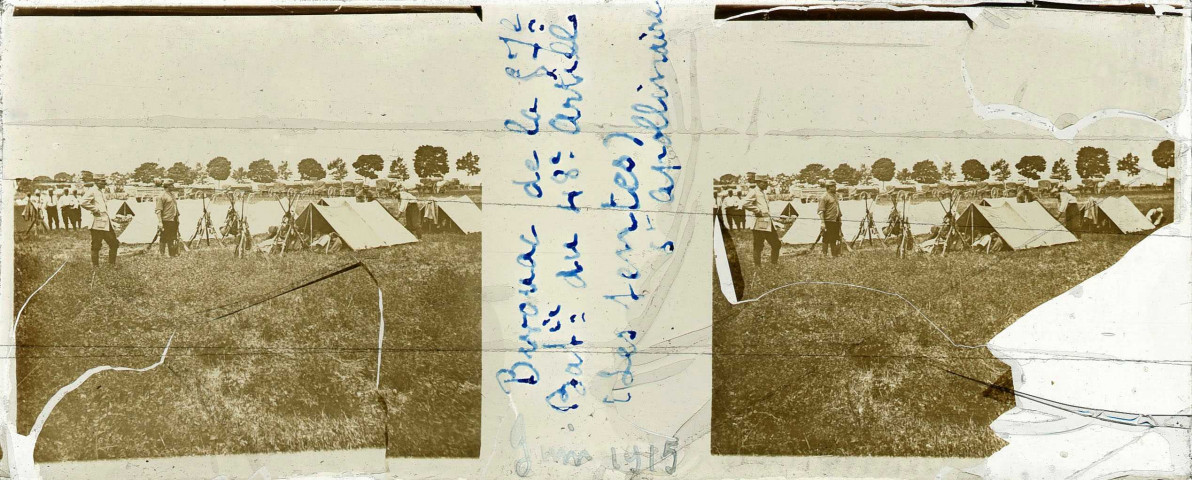 Bivouac de la 87e
Batie du 48e Artille
(Les tentes) St Apollinaire
Juin 1915